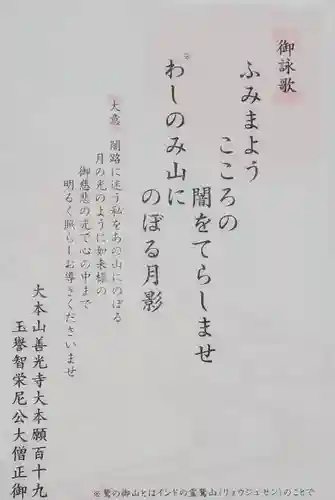 御詠歌
ふみまよう
こころの
闇をてらしませ
※わしのみ山に
のぼる月影
大意
闇路に迷う私をあの山にのぼる
月の光のように如来様の
御慈悲の光で心の中まで
明るく照らしお導きくださいませ
大本山善光寺大本願百十九
玉誉智栄尼公大僧正御
※鷲の御山とはインドの霊鷲山(リョウジュセン)のことで